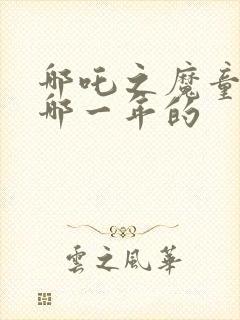 哪吒之魔童
哪一年的
雲之風華